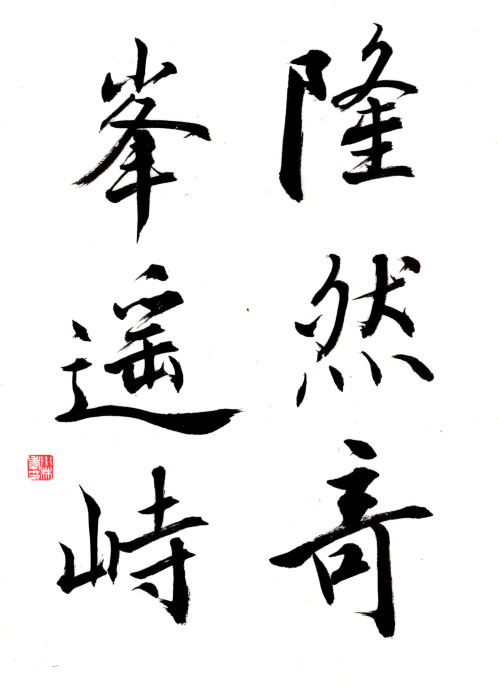 隆然奇
峯遥峙